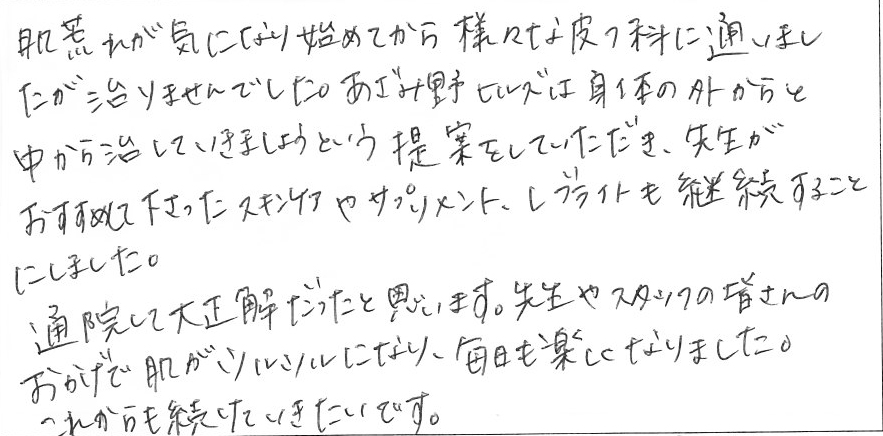 肌荒れが気になり始めてから様々な皮フ科に通いまし
たが治りませんでした。あざみ野ヒルズは身体の外からと
中から治していきましょうという提案をしていただき、先生が
おすすめして下さったスキンケアやサプリメント、レブライトも継続すること
にしました。
通院して大正解だったと思います。先生やスタッフの皆さんの
おかげで肌がツルツルになり、毎日も楽しくなりました。
これからも続けていきたいです。